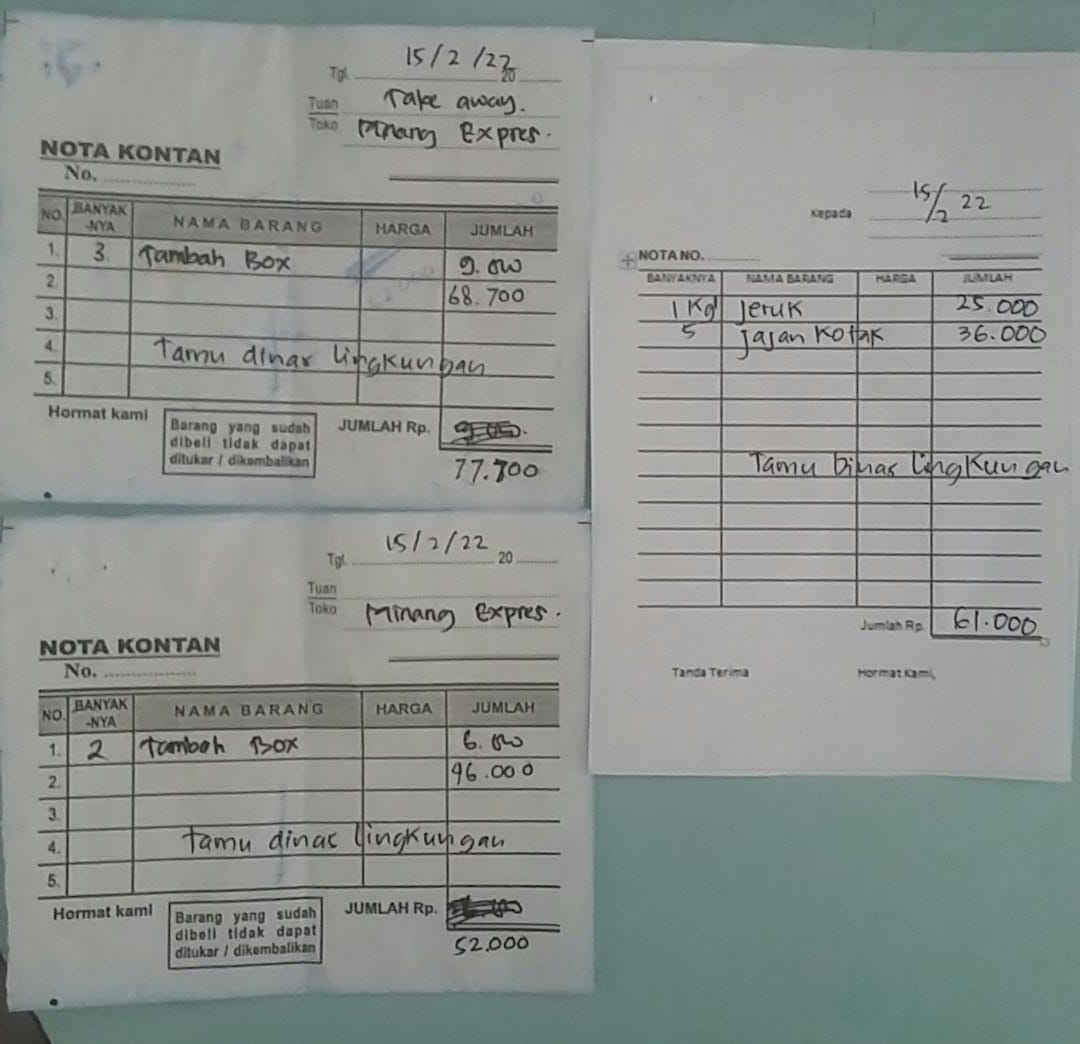 Tgl. 15/2/22 20
Tuan Take away.
Toko Minang Expres.
NOTA KONTAN
No.
NO. BANYAK-NYA NAMA BARANG HARGA JUMLAH
1. 3. Tambah Box 9.000
2. 68.700
3.
4. Tamu dinas lingkungan
5.
Hormat kami
Barang yang sudah
dibeli tidak dapat
ditukar / dikembalikan
JUMLAH Rp.
77.700
Tgl. 15/2/22 20
Tuan
Toko Minang Expres.
NOTA KONTAN
No.
NO. BANYAK-NYA NAMA BARANG HARGA JUMLAH
1. 2 Tambah Box 6.000
2. 46.000
3.
4. Tamu dinas lingkungan
5.
Hormat kami
Barang yang sudah
dibeli tidak dapat
ditukar / dikembalikan
JUMLAH Rp.
52.000
Kepada 15/2 22
NOTA NO.
BANYAKNYA NAMA BARANG HARGA JUMLAH
1 Kg Jeruk 25.000
5 Jajan Kotak 36.000
Tamu Dinas Lingkungan
Jumlah Rp. 61.000
Tanda Terima Hormat Kami,